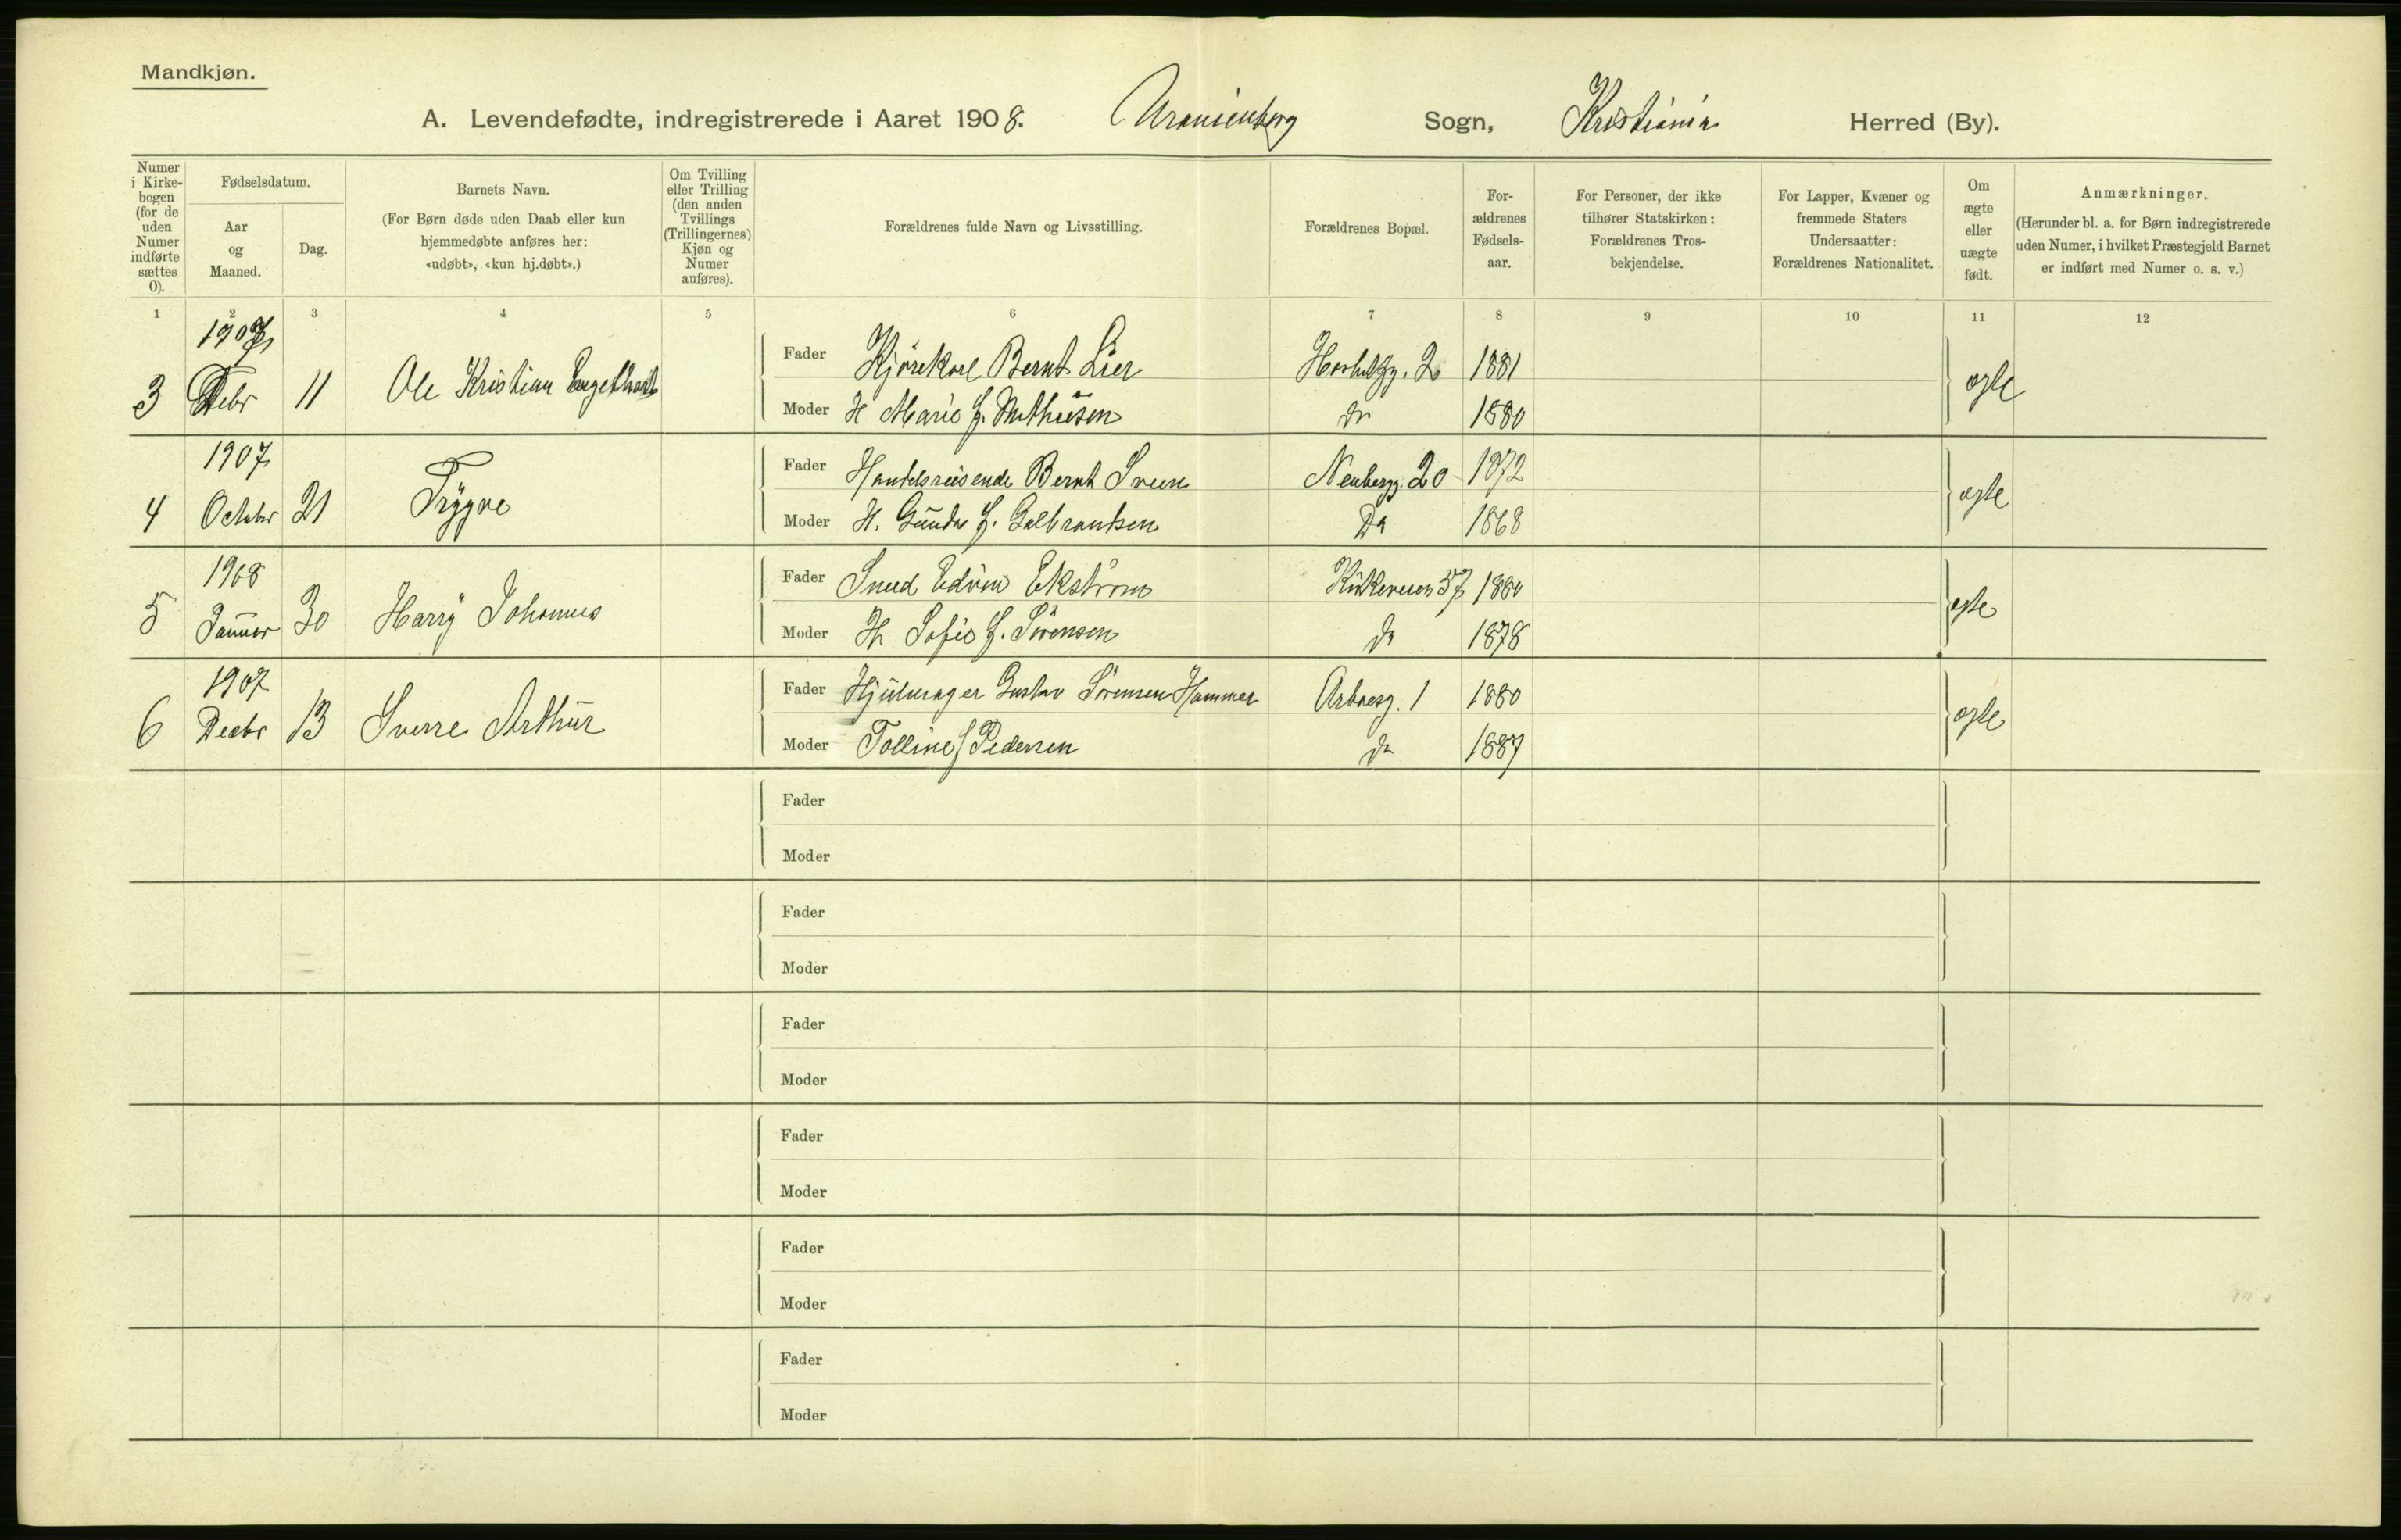 Mandkjøn.
A. Levendefødte, indregistrerede i Aaret 1908. Uranienborg Sogn, Kristiania Herred (By).
Numer i Kirke-bogen (for de uden Numer indførte sættes 0).
Fødselsdatum.
Aar og Maaned.
Dag.
Barnets Navn.
(For Børn døde uden Daab eller kun hjemmedøbte anføres her: «udøbt», «kun hj.døbt».)
Om Tvilling eller Trilling (den anden Tvillings (Trillingernes) Kjøn og Numer anføres).
Forældrenes fulde Navn og Livsstilling.
Forældrenes Bopæl.
For-ældrenes Fødsels-aar.
For Personer, der ikke tilhører Statskirken: Forældrenes Tros-bekjendelse.
For Lapper, Kvæner og fremmede Staters Undersaatter: Forældrenes Nationalitet.
Om ægte eller uægte født.
Anmærkninger.
(Herunder bl. a. for Børn indregistrerede uden Numer, i hvilket Præstegjeld Barnet er indført med Numer o. s. v.)
1 2 3 4 5 6 7 8 9 10 11 12
1907
3 Debr 11 Ole Kristian Engelhart Fader Kjørekarl Bernt Lier 2 1881 ægte
Moder H Marie f. Mathisen do 1880
1907
4 October 21 Trygve Fader Handelsreisende Bernt Sveen Neubergg. 20 1872 ægte
Moder H. Gunda f. Gulbrantsen Do 1868
1908
5 Januar 30 Harry Johannes Fader Smed Edvin Ekstrøm Kirkeveien 57 1880 ægte
Moder H. Sofie f. Sørensen do 1878
1907
6 Decbr 13 Sverre Arthur Fader Hjulmager Gustav Sørensen Hammer Arboesg. 1 1880 ægte
Moder Tolline f Pedersen do 1887
Fader
Moder
Fader
Moder
Fader
Moder
Fader
Moder
Fader
Moder
Fader
Moder